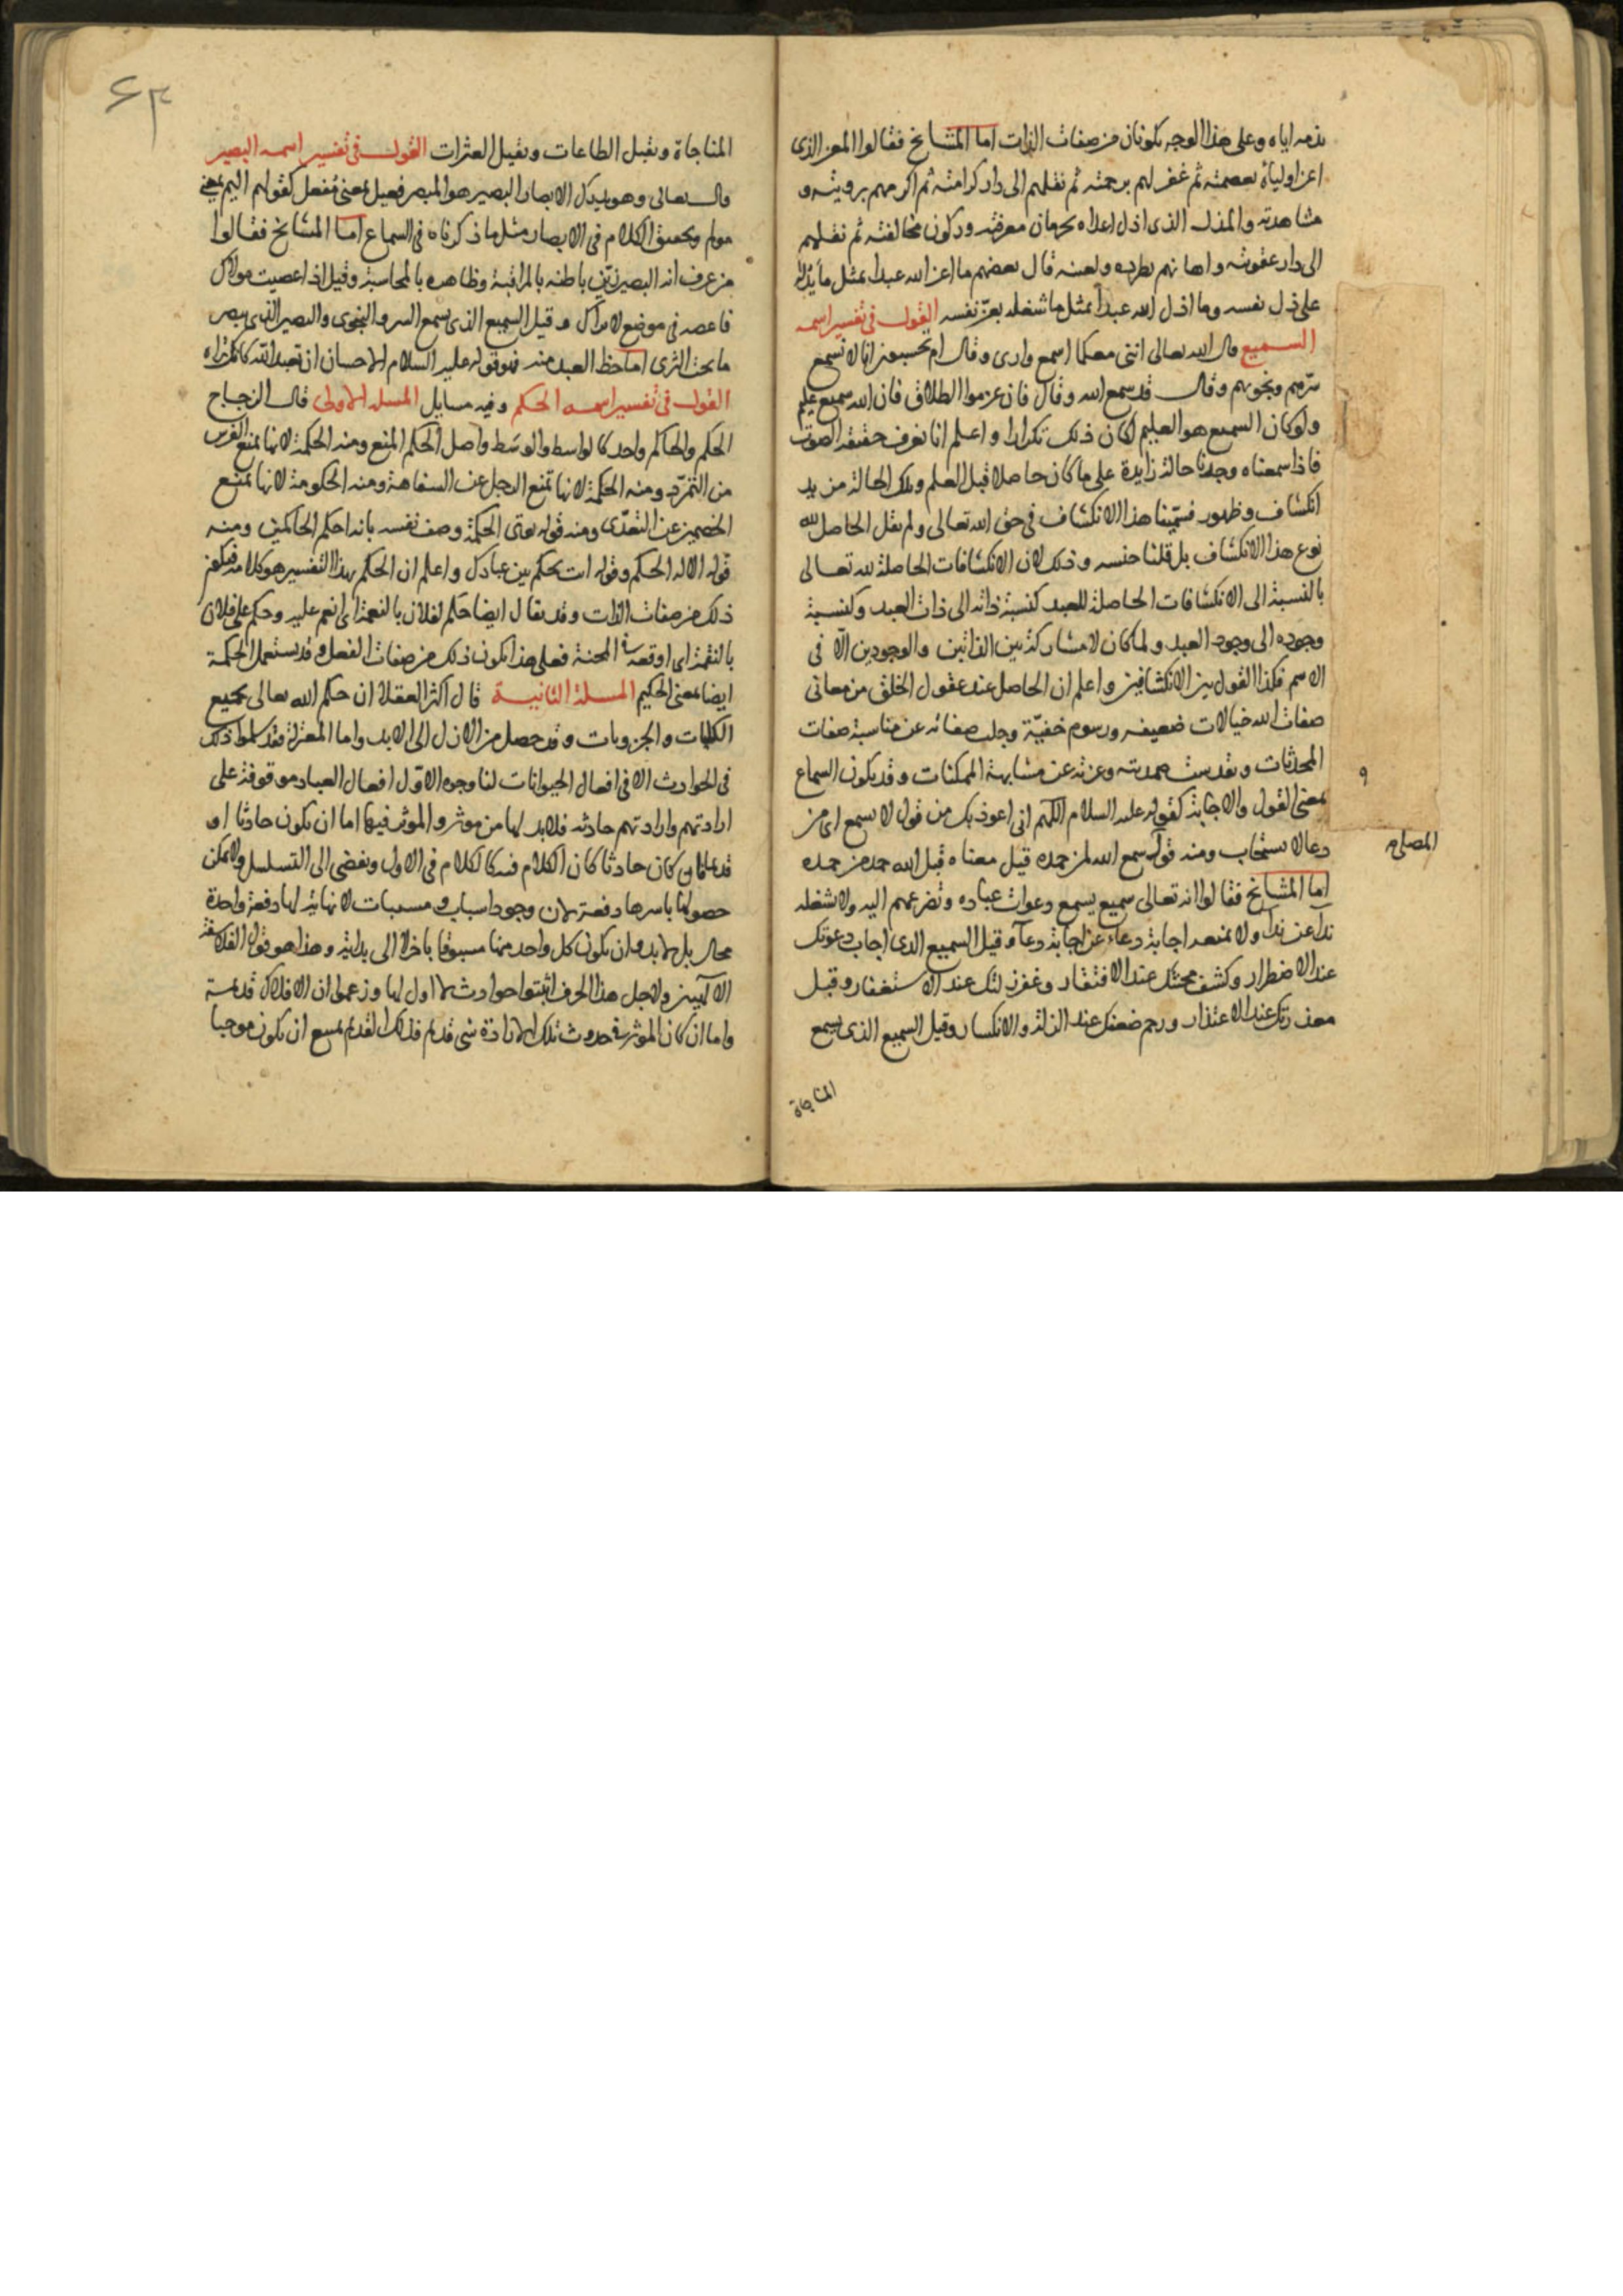 بذمه اياه وعلى هذا الوجه يكونان من صفات الذات اما المشايخ فقالوا المعز الذى
اعز اولياه بعصمته ثم غفر لهم برحمته ثم نقلهم الى دار كرامته ثم اكرمهم برويته و
مشاهدته والمذل الذى اذل اعداه بحرمان معرفته وركون مخالفته ثم نقلهم
الى دار عقوبته واهانهم بطرده ولعنه قال بعضهم ما اعز الله عبدا بمثل ما يدله
على ذل نفسه وما اذل الله عبدا بمثل ما شغله بعز نفسه القول فى تفسير اسمه
السميع قال الله تعالى اننى معكما اسمع وارى وقال ام يحسبون انا لا نسمع
سرهم ونجويهم وقال قد سمع الله وقال فان عزموا الطلاق فان الله سميع عليم
ولو كان السميع هو العليم لكان ذلك تكرارا واعلم انا نعرف حقيقة الصوت
فاذا سمعناه وجدنا حالة زايدة على ما كان حاصلا قبل العلم وتلك الحالة مزيد
انكشاف وظهور فسمينا هذا الانكشاف فى حق الله تعالى ولم نقل الحاصل لله
نوع هذا الانكشاف بل قلنا جنسه وذلك لان الانكشافات الحاصلة لله تعالى
بالنسبة الى الانكشافات الحاصلة للعبد كنسبة ذاته الى ذات العبد وكنسبة
وجوده الى وجود العبد ولما كان لا مشاركة بين الذاتين والوجودين الا فى
الاسم فكذا القول بين الانكشافين واعلم ان الحاصل عند عقول الخلق من معانى
صفات الله خيالات ضعيفه ورسوم خفية وجلت صفاته عن مناسبة صفات
المحدثات وتقدست صمديته وعزته عن مشابهة الممكنات وقد يكون السماع
بمعنى القبول والاجابة كقوله عليه السلام اللهم انى اعوذ بك من قول لا يسمع اى من
دعا لا يستجاب ومنه قول سمع الله لمن حمده قيل معناه قبل الله حمد من حمده
المصلى
اما المشايخ فقالوا انه تعالى سميع يسمع دعوات عباده وتضرعهم اليه ولا يشغله
ندا عن ندا ولا يمنعه اجابة دعاء عن اجابة دعاء وقيل السميع الذى اجاب دعوتك
عند الاضطرار وكشف محنتك عند الافتقار وغفر زلتك عند الاستغفار وقبل
معذرتك عند الاعتذار ورحم ضعفك عند الذلة والانكسار وقيل السميع الذى يسمع
المناجاة
٦٣
المناجاة ويقبل الطاعات ويقيل العثرات القول فى تفسير اسمه البصير
قال تعالى وهو يدرك الابصار البصير هو المبصر فعيل بمعنى مفعل كقولهم اليم بمعنى
مولم وتحقيق الكلام فى الابصار مثل ما ذكرناه فى السماع اما المشايخ فقالوا
من عرف انه البصير زين باطنه بالمراقبة وظاهره بالمحاسبة وقيل اذا عصيت مولاك
فاعصه فى موضع لا يراك وقيل السميع الذى يسمع السر والنجوى والبصير الذى يبصر
ما تحت الثرى اما حظ العبد منه فهو قوله عليه السلام الاحسان ان تعبد الله كانك تراه
القول فى تفسير اسمه الحكم وفيه مسايل المسلة الاولى قال الزجاج
الحكم والحاكم واحد كالواسط والوسط واصل الحكم المنع ومنه الحكمة لانها تمنع الفرس
من التمرد ومنه الحكمة لانها تمنع الرجل عن السفاهة ومنه الحكومة لانها تمنع
الخصمين عن التعدى ومنه قوله يوتى الحكمة وصف نفسه بانه احكم الحاكمين ومنه
قوله الا له الحكم وقوله انت تحكم بين عبادك واعلم ان الحكم بهذا التفسير هو كلامه فيكون
ذلك من صفات الذات وقد يقال ايضا حكم لفلان بالنعمة اى انعم عليه وحكم على فلان
بالنقمة اى اوقعه فى المحنة فعلى هذا يكون ذلك من صفات الفعل وقد يستعمل الحكمة
ايضا بمعنى الحكيم المسلة الثانية قال اكثر العقلا ان حكم الله تعالى بجميع
الكليات والجزويات وقد حصل من الازل الى الابد واما المعتزلة فقد سلموا ذلك
فى الحوادث الا فى افعال الحيوانات لنا وجوه الاول افعال العباد موقوفة على
ارادتهم وارادتهم حادثه فلا بد لها من موثر والموثر فيها اما ان يكون حادثا او
قديما فان كان حادثا كان الكلام فيه كالكلام فى الاول ويفضى الى التسلسل ولا يمكن
حصولها باسرها دفعة لان وجود اسباب ومسببات لا نهاية لها دفعة واحدة
محال بل لا بد وان يكون كل واحد منها مسبوقا باخر لا الى بداية وهذا هو قول الفلاسفة
الالهيين ولاجل هذا الحرف اثبتوا حوادث لا اول لها وزعموا ان الافلاك قديمة
واما ان كان الموثر فى حدوث تلك الارادة شى قديم فذلك القديم يمتنع ان يكون موجبا